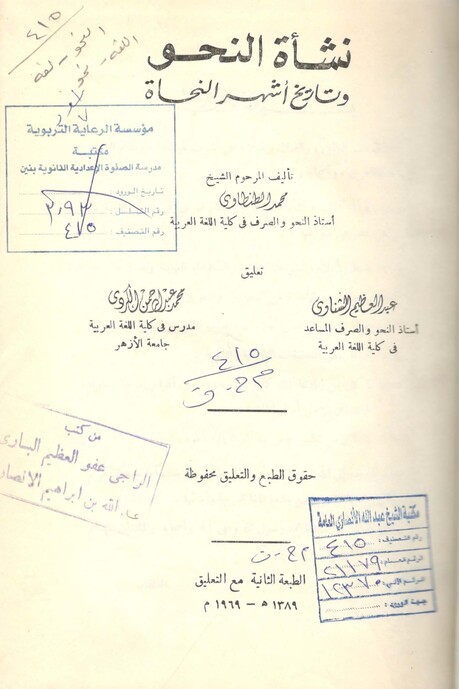 ٤١٥
النحو - لغة
نشأة النحو
وتاريخ أشهر النحاة
مؤسسة الرعاية التربوية
مكتبة
مدرسة الصلوة الإعدادية الثانوية بنين
تاريخ الورود
رقم التسلسل : ٣٠٩٣
رقم التصنيف : ٤١٥
تأليف المرحوم الشيخ
محمد الطنطاوى
أستاذ النحو والصرف فى كلية اللغة العربية
تعليق
عبد العظيم الشناوى
أستاذ النحو والصرف المساعد
فى كلية اللغة العربية
محمد عبد الرحمن الكردى
مدرس فى كلية اللغة العربية
جامعة الأزهر
٤١٥
حقوق الطبع والتعليق محفوظة
من كتب
الراجى عفو العظيم البارى
عبد الله بن ابراهيم الانصارى
مكتبة الشيخ عبد الله الأنصاري العامة
رقم التصنيف : ٤١٥
الرقم العام : ٢١١٧٩
الرقم الآلي : ١٢٣٧٠
جهة الورود :
الطبعة الثانية مع التعليق
١٣٨٩ ه - ١٩٦٩ م